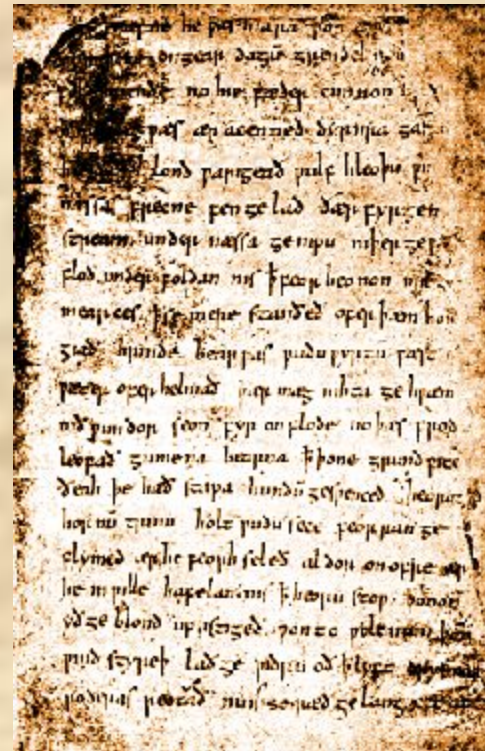 he ƿæs mara þoñ
on gear dagū grendel
no hie fæder cunnon
ƿæs ær acenned dyrnra gas
lond ƿarigeað ƿulf hleoþu ƿi
næssas frecne fen ge lad ðær fyrgen
stream under næssa genipu niþer geƿ
flod under foldan nis ꝥ feor heonon mil
mearces ꝥ se mere standeð ofer þæm hon
giað hrinde bearƿas ƿudu ƿyrtū fæst
ƿæter ofer helmað þær mæg nihta ge hƿæm
nið ƿundor seon fyr on flode no þæs frod
leofað gumena bearna ꝥ þone grund ƿite
ðeah þe hæð stapa hundū gesƿenced heorot
hornū trum holt ƿudu sece feorran ge
flymed ær he feorh seleð aldor on ofre ær
he in ƿille hafelan nis ꝥ heoru stoƿ þonon
yð ge blond up astigeð ƿon to ƿolcnum þoñ
ƿind styreþ lað ge ƿidru oð ꝥ lyft
roderas reotað nu is se ræd ge lang